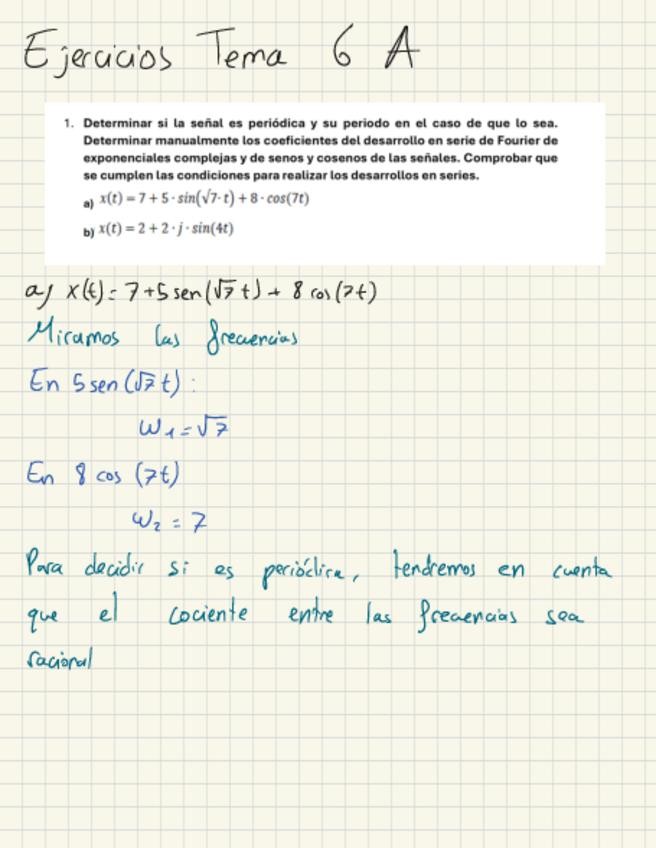 Ejercicios Tema 6 A
1. Determinar si la señal es periódica y su periodo en el caso de que lo sea.
Determinar manualmente los coeficientes del desarrollo en serie de Fourier de
exponenciales complejas y de senos y cosenos de las señales. Comprobar que
se cumplen las condiciones para realizar los desarrollos en series.
a) x(t) = 7 + 5 · sin(√7 · t) + 8 · cos(7t)
b) x(t) = 2 + 2 · j · sin(4t)
a) x(t) = 7 + 5 sen(√7 t) + 8 cos(7t)
Miramos las frecuencias
En 5 sen(√7 t) :
W₁ = √7
En 8 cos (7t)
W₂ = 7
Para decidir si es periódica, tendremos en cuenta
que el cociente entre las frecuencias sea
racional